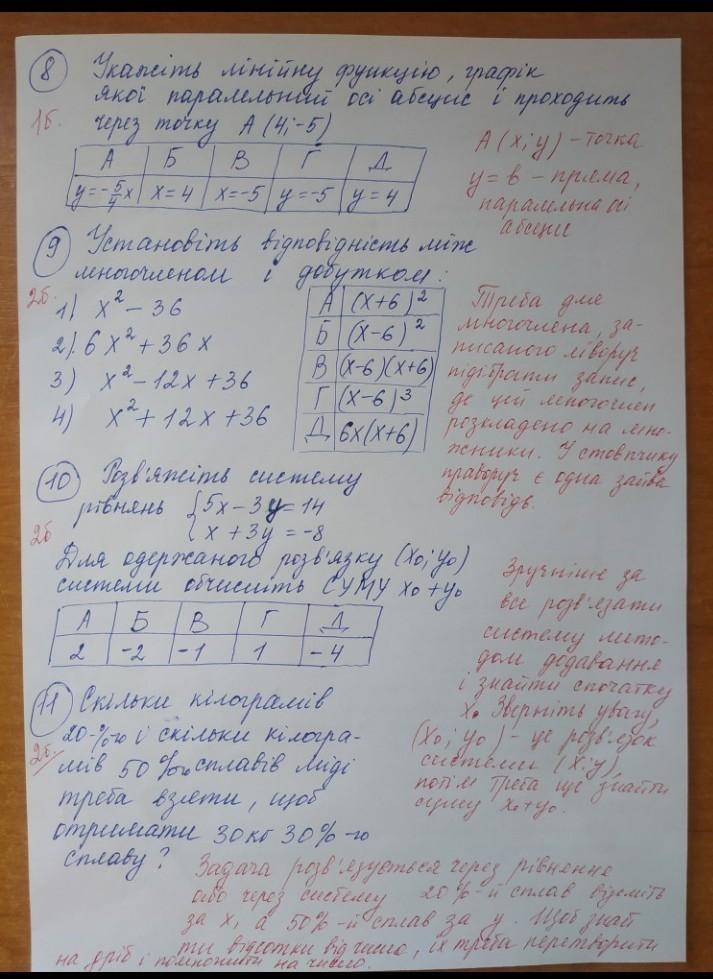 8 Укажіть лінійну функцію, графік
якої паралельний осі абсцис і проходить
1б. через точку A (4; -5)
А Б В Г Д
y=-5/4x x=4 x=-5 y=-5 y=4
A (x; y) - точка
y = b - пряма,
паралельна осі
абсцис
9 Установіть відповідність між
многочленом і добутком:
2б.
1) x² - 36
2) 6x² + 36x
3) x² - 12x + 36
4) x² + 12x + 36
А (x+6)²
Б (x-6)²
В (x-6)(x+6)
Г (x-6)³
Д 6x(x+6)
Треба для
многочлена, за-
писаного ліворуч
підібрати запис,
де цей многочлен
розкладено на мно-
жники. У стовпчику
праворуч є одна зайва
відповідь.
10 Розв'яжіть систему
рівнянь {5x - 3y = 14
{x + 3y = -8
2б
Для одержаного розв'язку (x₀; y₀)
системи обчисліть СУМУ x₀ + y₀
А Б В Г Д
2 -2 -1 1 -4
Зручніше за
все розв'язати
систему мето-
дом додавання
і знайти спочатку
x. Зверніть увагу,
(x₀; y₀) - це розв'язок
системи (x; y),
потім треба ще знайти
суму x₀ + y₀.
11 Скільки кілограмів
20-%-ю і скільки кілогра-
2б.
мів 50%-ю сплавів міді
треба взяти, щоб
отримати 30кг 30%-ю
сплаву?
Задача розв'язується через рівняння
або через систему 20%-й сплав візьміть
за x, а 50%-й сплав за y. Щоб знай
ти відсотки від числа, їх треба перетворити
на дріб і помножити на число.